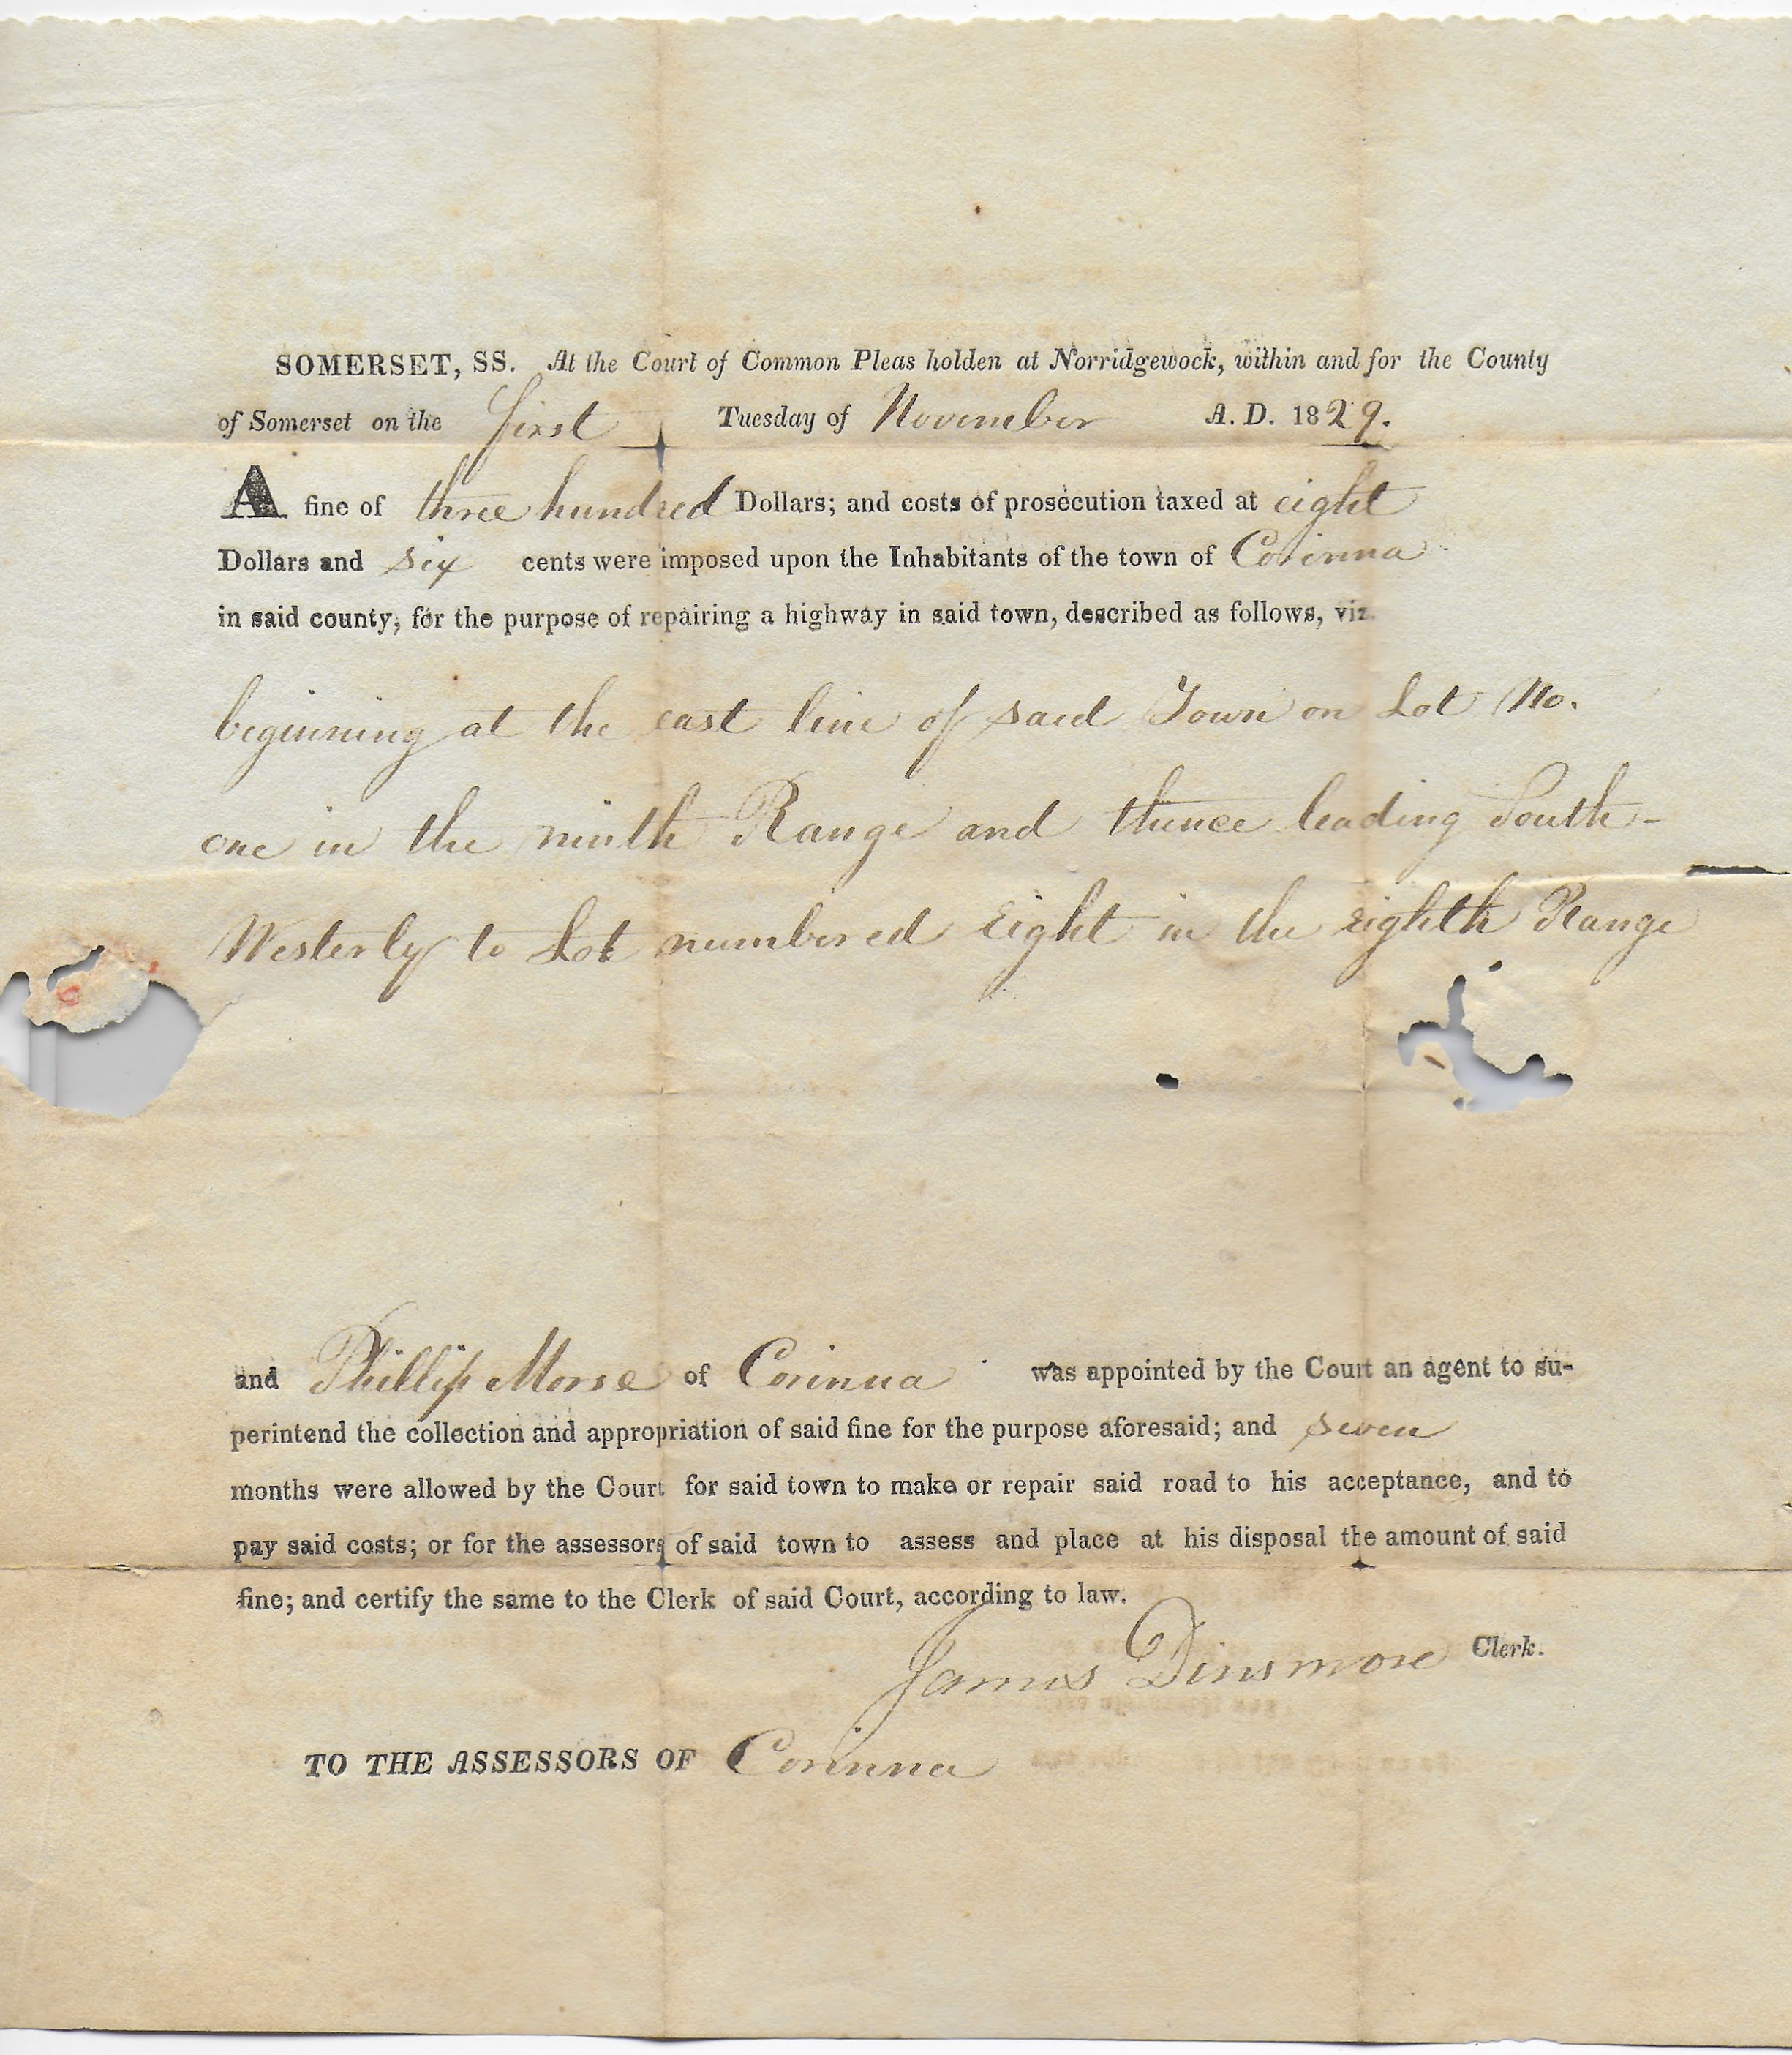 SOMERSET, SS. At the Court of Common Pleas holden at Norridgewock, within and for the County
of Somerset on the first Tuesday of November A. D. 1829.
A fine of three hundred Dollars; and costs of prosecution taxed at eight
Dollars and six cents were imposed upon the Inhabitants of the town of Corinna
in said county, for the purpose of repairing a highway in said town, described as follows, viz.
beginning at the east line of said Town on Lot No.
one in the ninth Range and thence leading South-
Westerly to Lot numbered Eight in the eighth Range
and Phillip Morse of Corinna was appointed by the Court an agent to su-
perintend the collection and appropriation of said fine for the purpose aforesaid; and seven
months were allowed by the Court for said town to make or repair said road to his acceptance, and to
pay said costs; or for the assessors of said town to assess and place at his disposal the amount of said
fine; and certify the same to the Clerk of said Court, according to law.
James Dinsmore Clerk.
TO THE ASSESSORS OF Corinna